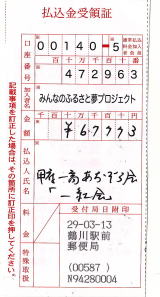 払込金受領証
口座番号
百 十 万 千 百 十 番
00140-5
通常払込料金加入者負担
千 百 十 万 千 百 十 番
472963
加入者名
みんなのふるさと夢プロジェクト
金額
千 百 十 万 千 百 十 円
¥67993
払込人氏名
「一紅会」
料金
特殊取扱
受付局日附印
29-03-13
鶴川駅前
郵便局
(00587)
N94280004
記載事項を訂正した場合は、その箇所に訂正印を押してください。